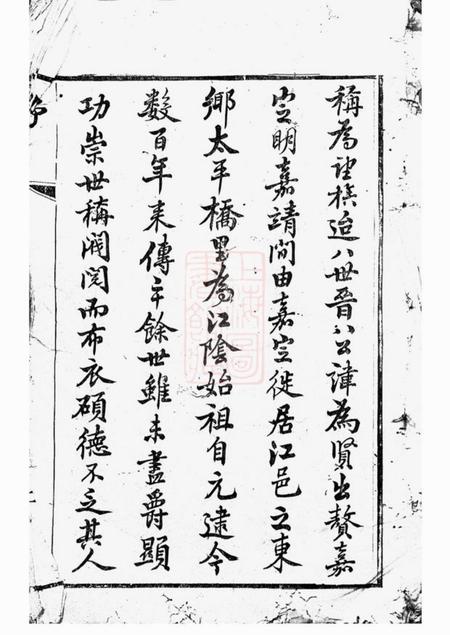 稱為望槎迨八世晉八公諱為賢出贅嘉
定明嘉靖間由嘉定徙居江邑之東
鄉太平橋里為江陰始祖自元逮今
数百年来傳二十餘世雖未盡爵顯
功崇世稱閥閱而布衣碩德不乏其人